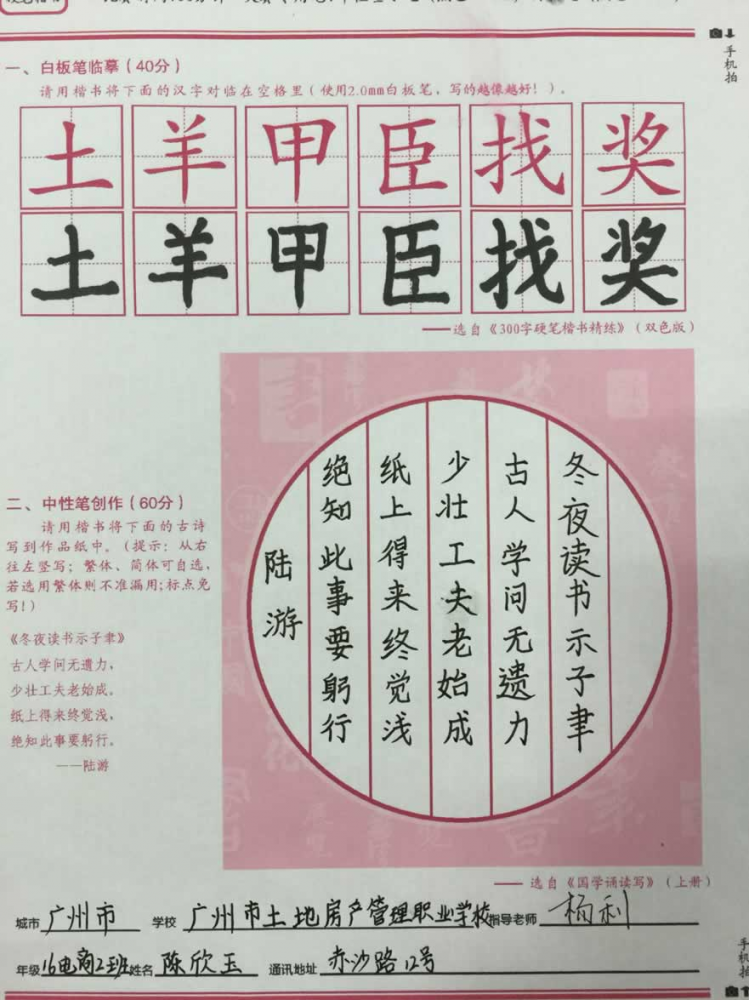 手机拍
一、白板笔临摹（40分）
请用楷书将下面的汉字对临在空格里（使用2.0mm白板笔，写的越像越好！）。
土羊甲臣找奖
土羊甲臣找奖
——选自《300字硬笔楷书精练》（双色版）
二、中性笔创作（60分）
请用楷书将下面的古诗
写到作品纸中。（提示：从右
往左竖写；繁体、简体可自选，
若选用繁体则不准漏用；标点免
写！）
《冬夜读书示子聿》
古人学问无遗力，
少壮工夫老始成。
纸上得来终觉浅，
绝知此事要躬行。
——陆游
冬夜读书示子聿
古人学问无遗力
少壮工夫老始成
纸上得来终觉浅
绝知此事要躬行
陆游
——选自《国学诵读写》（上册）
城市 广州市 学校 广州市土地房产管理职业学校 指导老师 杨利
年级 16电商2班 姓名 陈欣玉 通讯地址 赤沙路12号
手机拍